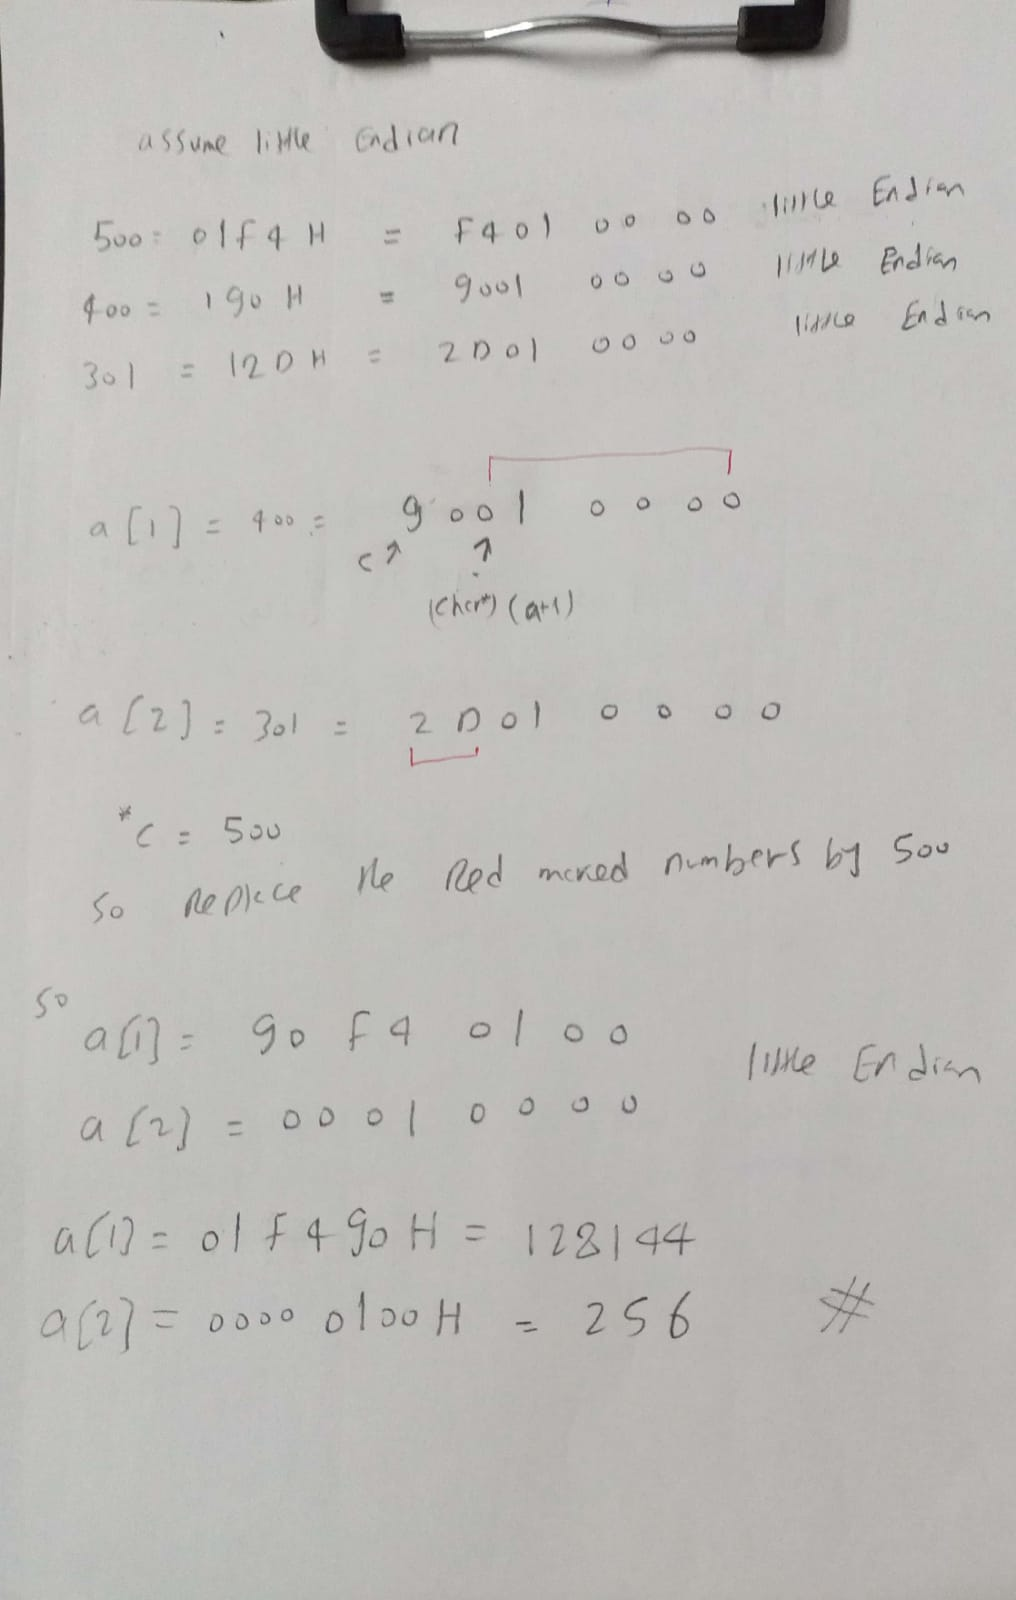 assume little Endian
500 = 01F4 H = F401 00 00 little Endian
400 = 190 H = 9001 00 00 little Endian
301 = 12D H = 2D01 00 00 little Endian
a[1] = 400 = 9001 0 0 0 0
c↗ ↗
(char*) (a+1)
a[2] = 301 = 2D01 0 0 0 0
*c = 500
so Replace the Red marked numbers by 500
so
a[1] = 90 F4 01 00
little Endian
a[2] = 0001 0 0 0 0
a[1] = 01F490H = 128144
a[2] = 0000 0100H = 256 #